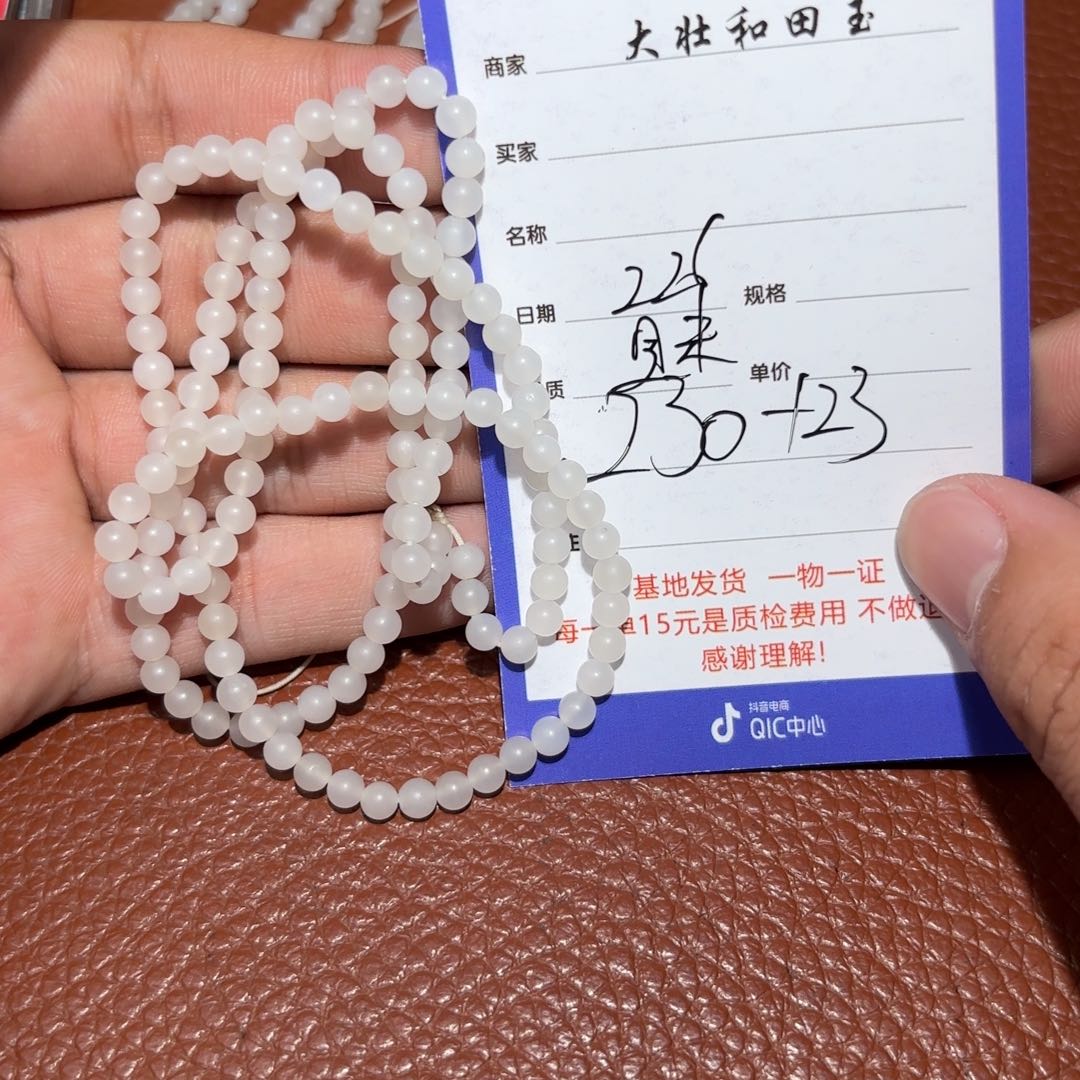 商家 大壮和田玉
买家
名称
日期 226 规格
月未
质 单价
230+23
基地发货 一物一证
每一单15元是质检费用 不做退
感谢理解!
抖音电商
QIC中心